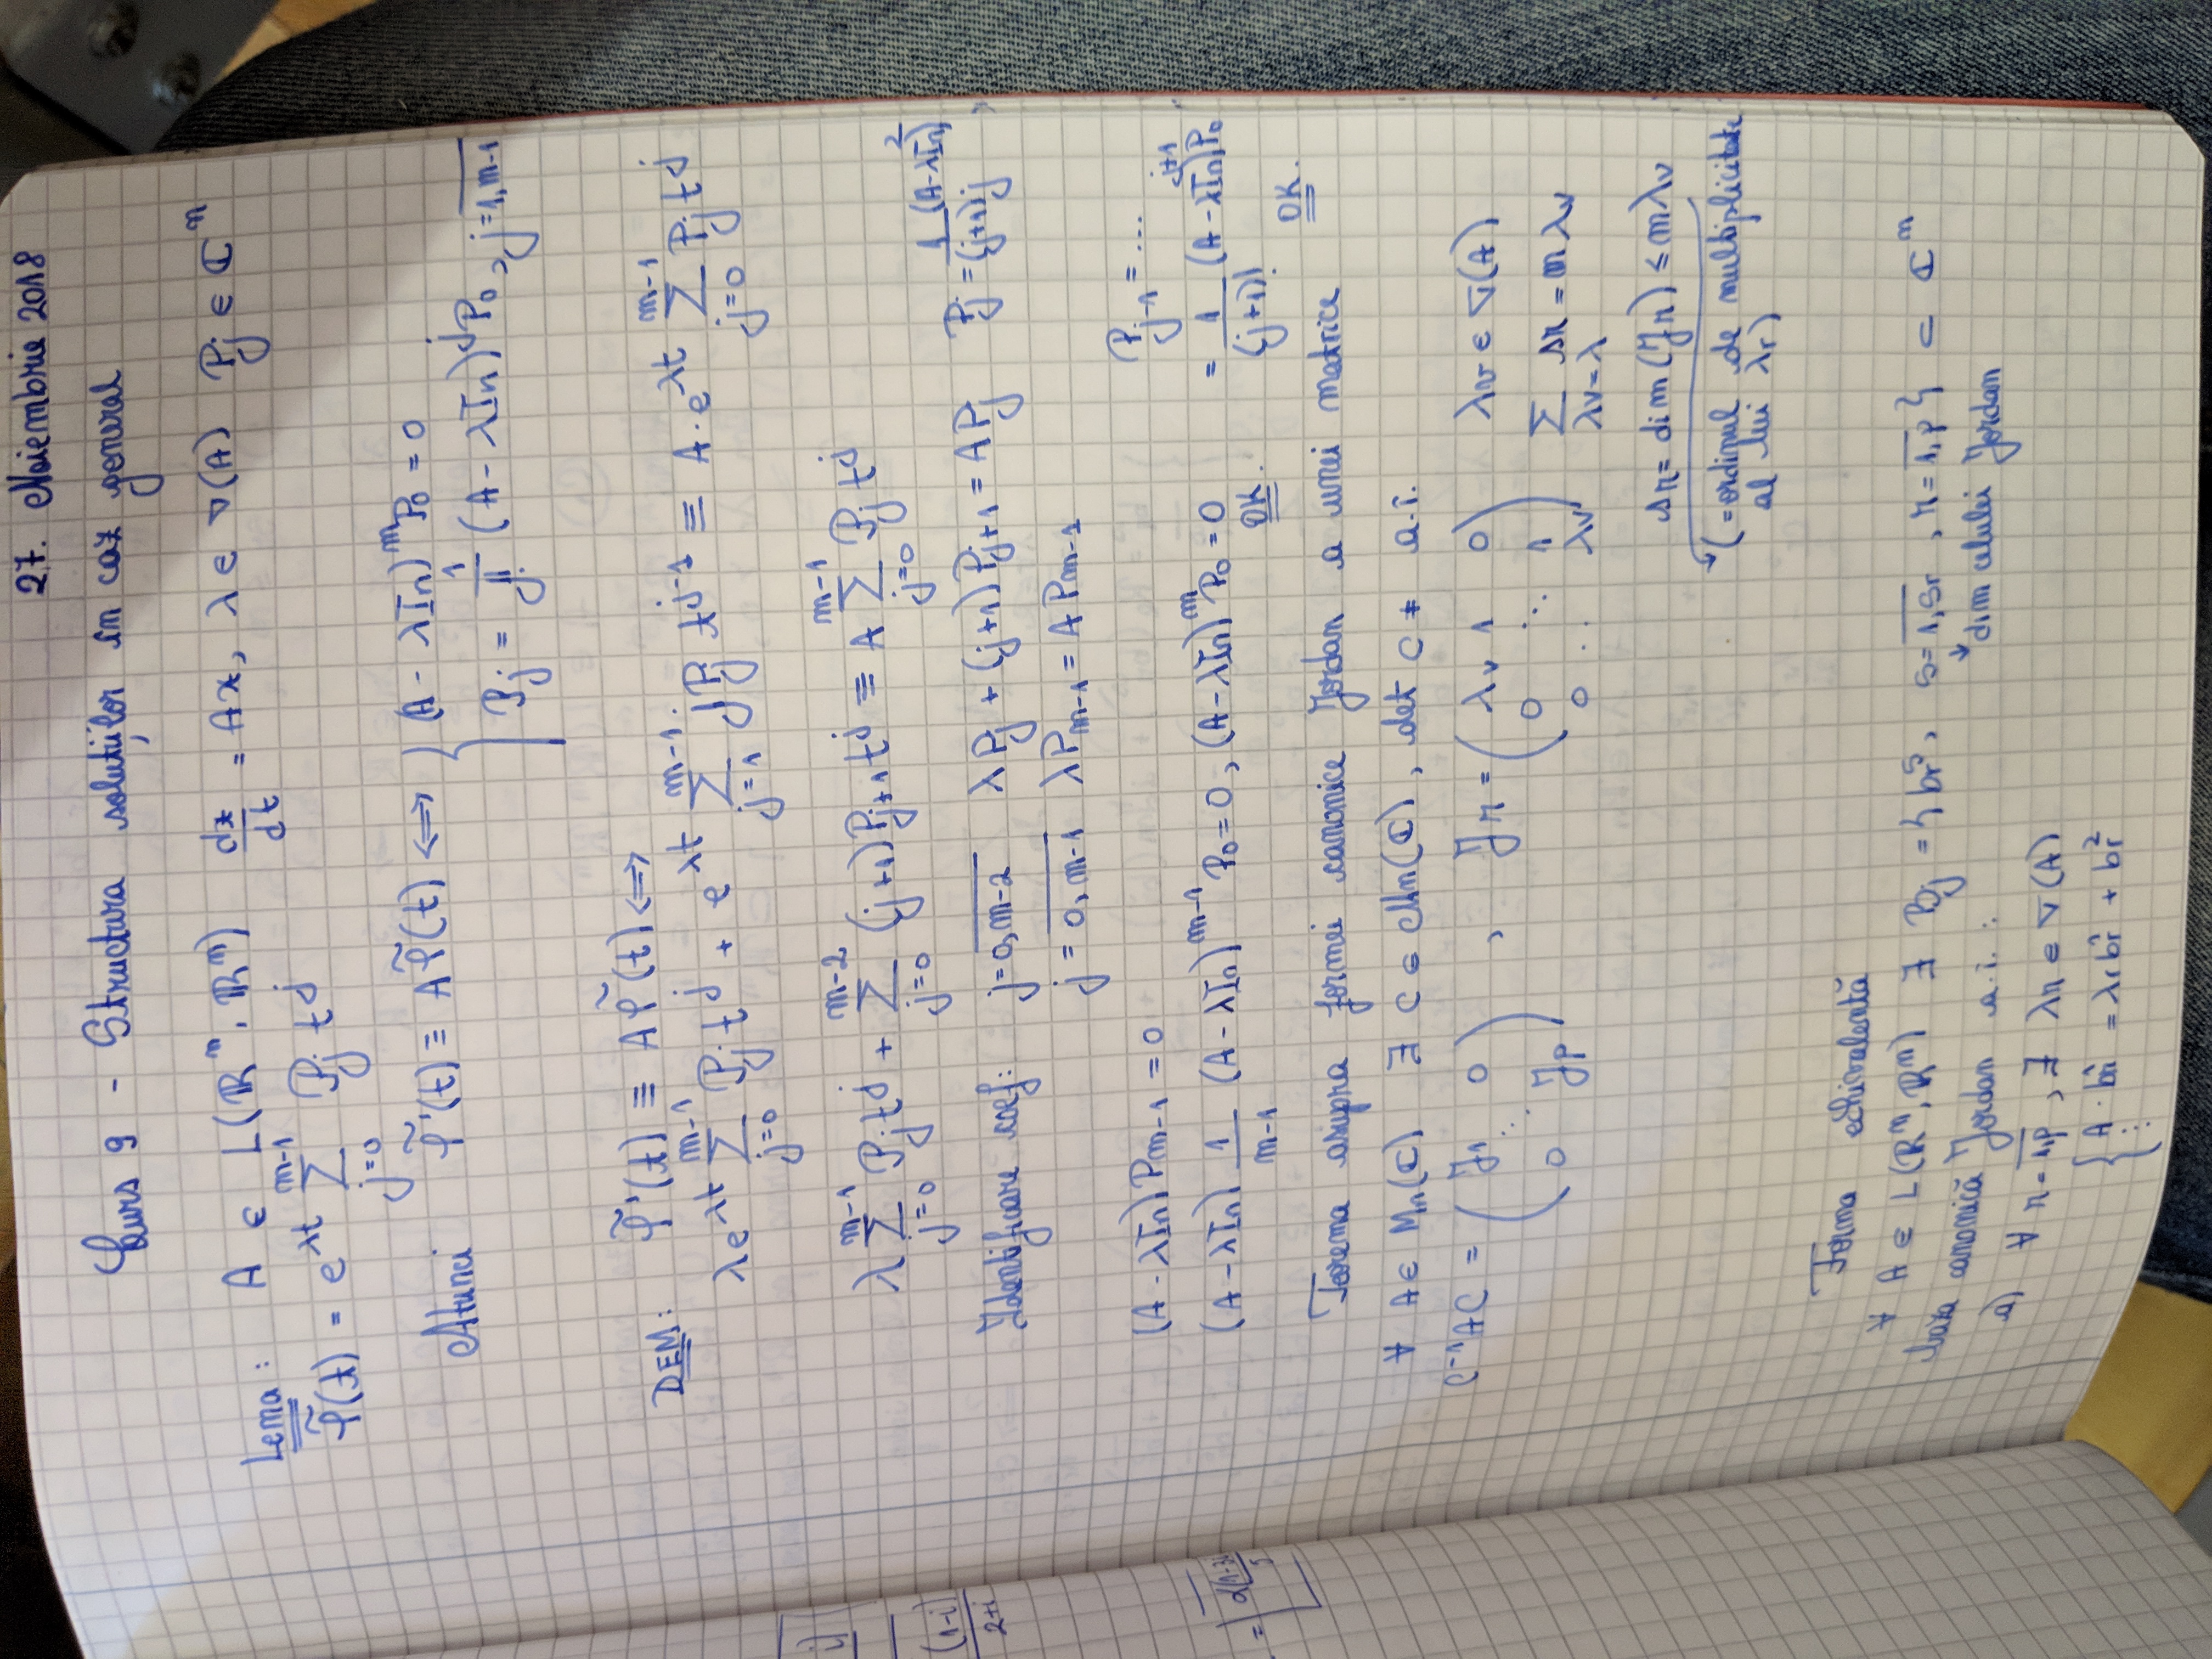 27. Noiembrie 2018
Curs 9 - Structura soluțiilor în caz general
Lema: A ∈ L(ℝⁿ, ℝⁿ) dx/dt = Ax, λ ∈ ∇(A) Pj ∈ ℂⁿ
φ̃(t) = e^{λt} ∑_{j=0}^{m-1} Pj t^j
Atunci φ̃'(t) ≡ Aφ̃(t) ⟺ { (A - λIn)^m P0 = 0
Pj = 1/j! (A - λIn)^j P0, j = \overline{1, m-1}
DEM: φ̃'(t) ≡ Aφ̃(t) ⟺
λe^{λt} ∑_{j=0}^{m-1} Pj t^j + e^{λt} ∑_{j=1}^{m-1} jPj t^{j-1} ≡ A · e^{λt} ∑_{j=0}^{m-1} Pj t^j
λ ∑_{j=0}^{m-1} Pj t^j + ∑_{j=0}^{m-2} (j+1)P_{j+1} t^j ≡ A ∑_{j=0}^{m-1} Pj t^j
Identificare coef: j = \overline{0, m-2} λPj + (j+1)P_{j+1} = APj Pj = 1/((j+1)j) (A-λIn)^2
j = \overline{0, m-1} λP_{m-1} = AP_{m-1}
(A - λIn)P_{m-1} = 0 P_{j-1} = ...
(A - λIn) 1/(m-1) (A - λIn)^{m-1} P0 = 0, (A - λIn)^m P0 = 0 = 1/(j+1)! (A - λIn)^{j+1} P0
OK. OK.
Teorema asupra formei canonice Jordan a unei matrice
∀ A ∈ Mn(ℂ) ∃ C ∈ Mn(ℂ), det C ≠ a.î.
C⁻¹AC = ( J1 0 ⋱ 0 Jp ), Jr = ( λv 1 0 0 ⋱ 1 0 .. λv ) λv ∈ ∇(A)
∑_{λv=λ} sr = mλv
sr = dim(Jr) ≤ mλv
(= ordinul de multiplicitate
al lui λr)
Forma echivalentă
∀ A ∈ L(ℝⁿ, ℝⁿ) ∃ Bj = { br^s, s = \overline{1, sr}, r = \overline{1, p} } ⊂ ℂⁿ
baza canonică Jordan a.î.: dim celului Jordan
a) ∀ r = \overline{1, p}, ∃ λr ∈ ∇(A)
{ A · br^1 = λr br^1 + br^2
⋮
i)
(1-i)
2+i
=